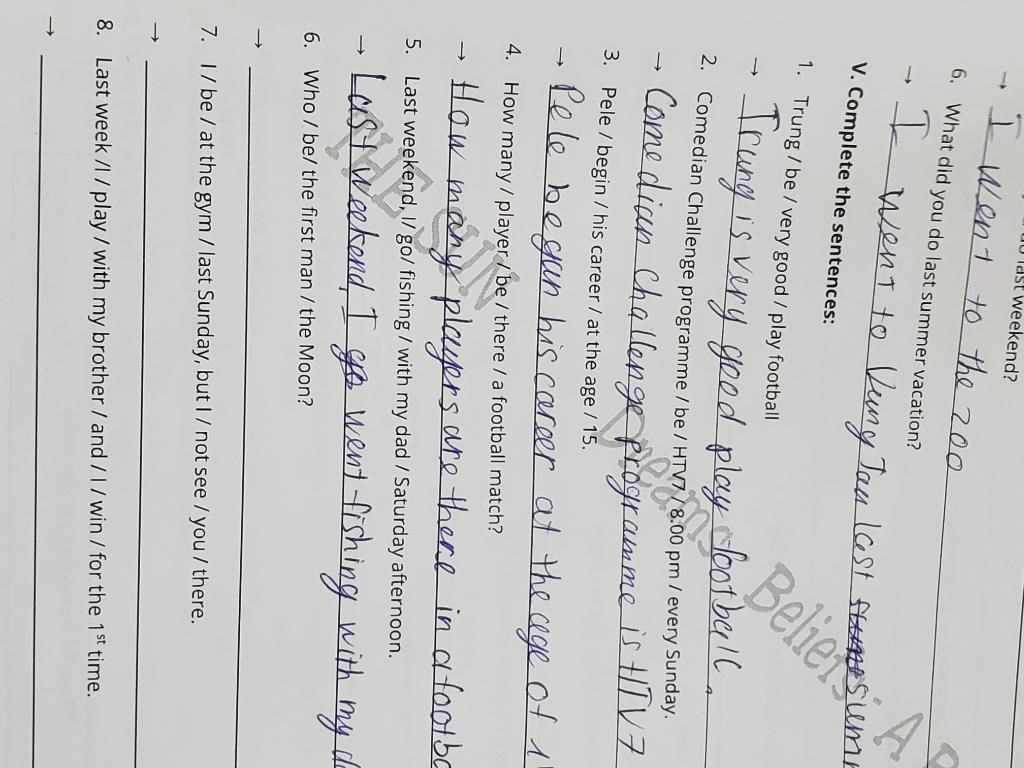 last weekend?
→ I went to the zoo
6. What did you do last summer vacation?
→ I went to Vung Tau last
V. Complete the sentences:
1. Trung / be / very good / play football
→ Trung is very good play football
2. Comedian Challenge programme / be / HTV7 / 8.00 pm / every Sunday.
→ Comedian Challenge programme is HTV7
3. Pele / begin / his career / at the age / 15.
→ Pele began his career at the age of
4. How many / player / be / there / a football match?
→ How many players are there in a footba
5. Last weekend, I / go / fishing / with my dad / Saturday afternoon.
→ Last weekend, I go went fishing with my d
6. Who / be / the first man / the Moon?
→
7. I / be / at the gym / last Sunday, but I / not see / you / there.
→
8. Last week / I / play / with my brother / and / I / win / for the 1st time.
→
THE SUN
Dreams Beliefs A